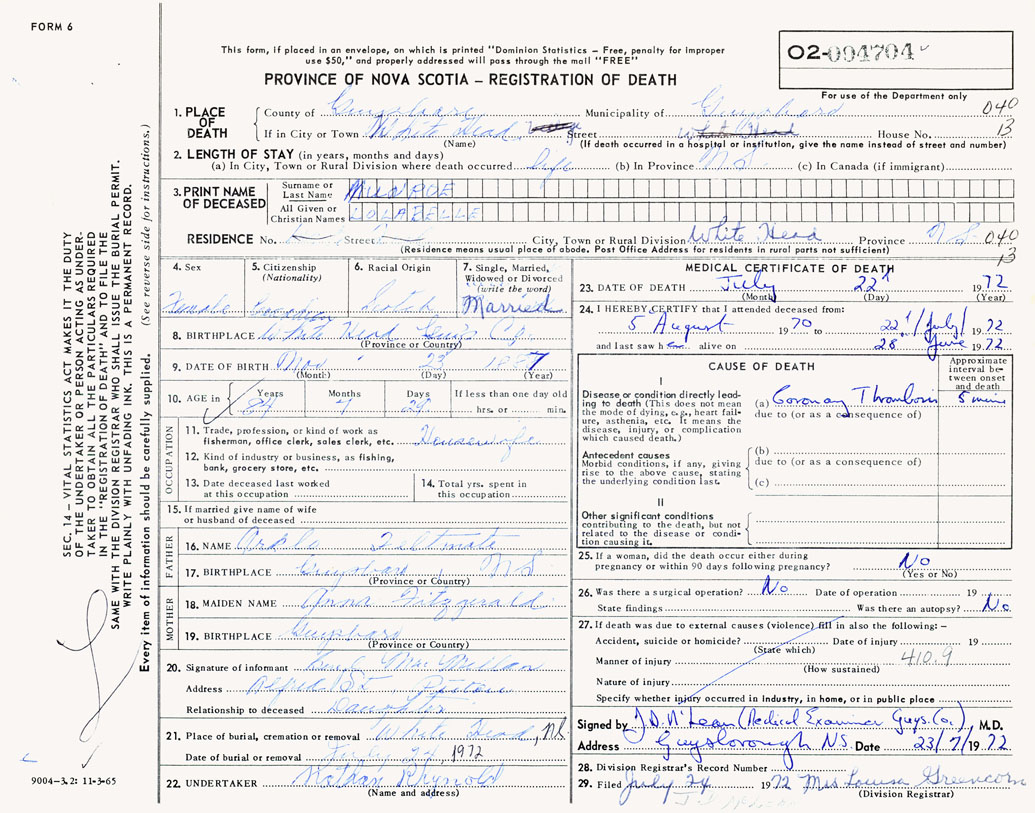 FORM 6
This form, if placed in an envelope, on which is printed "Dominion Statistics – Free, penalty for improper
use $50," and properly addressed will pass through the mail "FREE"
PROVINCE OF NOVA SCOTIA – REGISTRATION OF DEATH
O2-094704
For use of the Department only
1. PLACE OF DEATH
County of Guysboro Municipality of Guysboro 040
If in City or Town White Head, Street White Head House No. 13
(Name) (If death occurred in a hospital or institution, give the name instead of street and number)
2. LENGTH OF STAY (in years, months and days)
(a) In City, Town or Rural Division where death occurred life (b) In Province N S. (c) In Canada (if immigrant)
3. PRINT NAME OF DECEASED
Surname or Last Name MUNROE
All Given or Christian Names LOLAZELLE
RESIDENCE No. Street City, Town or Rural Division White Head Province N S. 040
(Residence means usual place of abode. Post Office Address for residents in rural parts not sufficient) 13
4. Sex
Female
5. Citizenship
(Nationality)
Canadian
6. Racial Origin
Scotch
7. Single, Married,
Widowed or Divorced
(write the word)
Married
8. BIRTHPLACE White Head Guys Co.
(Province or Country)
9. DATE OF BIRTH Nov 23 1887
(Month) (Day) (Year)
10. AGE in Years Months Days If less than one day old
84 7 29 hrs. or min.
OCCUPATION
11. Trade, profession, or kind of work as
fisherman, office clerk, sales clerk, etc. Housewife
12. Kind of industry or business, as fishing,
bank, grocery store, etc.
13. Date deceased last worked
at this occupation
14. Total yrs. spent in
this occupation
15. If married give name of wife
or husband of deceased
FATHER
16. NAME Feltmate
17. BIRTHPLACE Guysboro, N S.
(Province or Country)
MOTHER
18. MAIDEN NAME Anna Fitzgerald
19. BIRTHPLACE Guysboro
(Province or Country)
20. Signature of informant Mac Millan
Address Alfred St Pictou
Relationship to deceased Daughter
21. Place of burial, cremation or removal White Head, N.S.
Date of burial or removal July 24, 1972
22. UNDERTAKER Nathan Rhynold
(Name and address)
MEDICAL CERTIFICATE OF DEATH
23. DATE OF DEATH July 22 1972
(Month) (Day) (Year)
24. I HEREBY CERTIFY that I attended deceased from:
5 August 1970 to 22 July 1972
and last saw her alive on 28 June 1972
CAUSE OF DEATH
Approximate
interval between
onset
and death
I
Disease or condition directly leading
to death (This does not mean
the mode of dying, e.g., heart failure,
asthenia, etc. It means the
disease, injury, or complication
which caused death.)
(a) Coronary Thrombosis 5 mins
due to (or as a consequence of)
Antecedent causes
Morbid conditions, if any, giving
rise to the above cause, stating
the underlying condition last.
(b)
due to (or as a consequence of)
(c)
II
Other significant conditions
contributing to the death, but not
related to the disease or condition
causing it.
25. If a woman, did the death occur either during
pregnancy or within 90 days following pregnancy? No
(Yes or No)
26. Was there a surgical operation? No Date of operation 19
State findings Was there an autopsy? No
27. If death was due to external causes (violence) fill in also the following: –
Accident, suicide or homicide? Date of injury 19
(State which)
Manner of injury 410.9
(How sustained)
Nature of injury
Specify whether injury occurred in industry, in home, or in public place
Signed by J.D. McLean (Medical Examiner Guys. Co.), M.D.
Address Guysborough N.S. Date 23/7/1972
28. Division Registrar's Record Number
29. Filed July 24 1972 Mrs Louisa Greencorn
(Division Registrar)
SEC. 14 – VITAL STATISTICS ACT MAKES IT THE DUTY
OF THE UNDERTAKER OR PERSON ACTING AS UNDER-
TAKER TO OBTAIN ALL THE PARTICULARS REQUIRED
IN THE "REGISTRATION OF DEATH" AND TO FILE THE
SAME WITH THE DIVISION REGISTRAR WHO SHALL ISSUE THE BURIAL PERMIT.
WRITE PLAINLY WITH UNFADING INK. THIS IS A PERMANENT RECORD.
Every item of information should be carefully supplied. (See reverse side for instructions.)
9004-3.2: 11-3-65